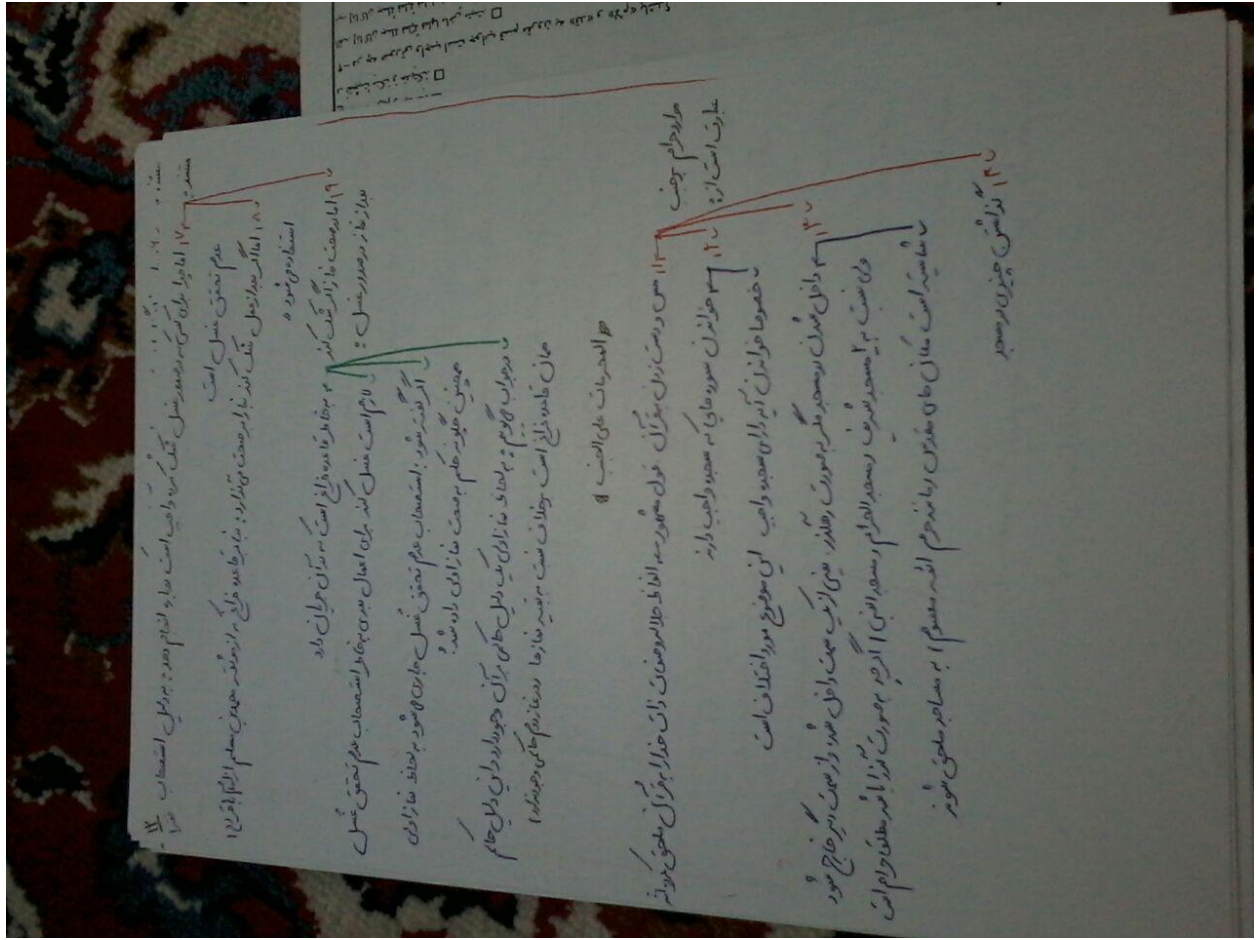 اما چرا برای کسی که در صدور غسل شک کرده واجب است که او انجام دهد: به دلیل استصحاب
عدم تحقق غسل است
اما اگر بعد از عمل شک کند نماز او صحت می‌دارد: بنابر قاعده فراغ که از موثقه محمدبن مسلم
استفاده می‌شود
اما در صحت نماز اگر شک کند
بعد از نماز در صدور غسل:
به خاطر قاعده فراغ است که در آن جریان دارد
لازم است غسل کند برای اعمال بعدی به خاطر استصحاب عدم تحقق غسل
اگر گفته شود: استصحاب عدم تحقق غسل جاری می‌شود به لحاظ نماز اولی
همچنین چگونه حکم به صحت نماز اولی داده شد؟
در جواب می‌گویم: به لحاظ نماز اولی یک دلیل حاکمی بر آن وجود دارد و این دلیل حاکم
همان قاعده فراغ است بر خلاف نسبت به بقیه نمازها
المحرمات علی الجنب
موارد حرام بر جنب
عبارت است از:
مس و دست زدن به قرآن قول مشهور: الفاظ جلاله و صفات ذات خدا را به قرآن ملحق کرده‌اند
خواندن سوره‌هایی که سجده واجب دارند
خصوصا خواندن آیه دارای سجده واجب این موضوع مورد اختلاف است
داخل شدن در مسجد مگر به صورت رهگذر یعنی از یک سمت داخل شود و از سمت دیگر خارج شود
ولی نسبت به ۲ مسجد شریف (مسجد الحرام و مسجد النبی) اگر چه به صورت گذرا باشد مطلقا حرام است
شایسته است مکان‌های مقدس را مانند حرم ائمه معصوم به مساجد ملحق شوند
گذاشتن چیزی در مسجد